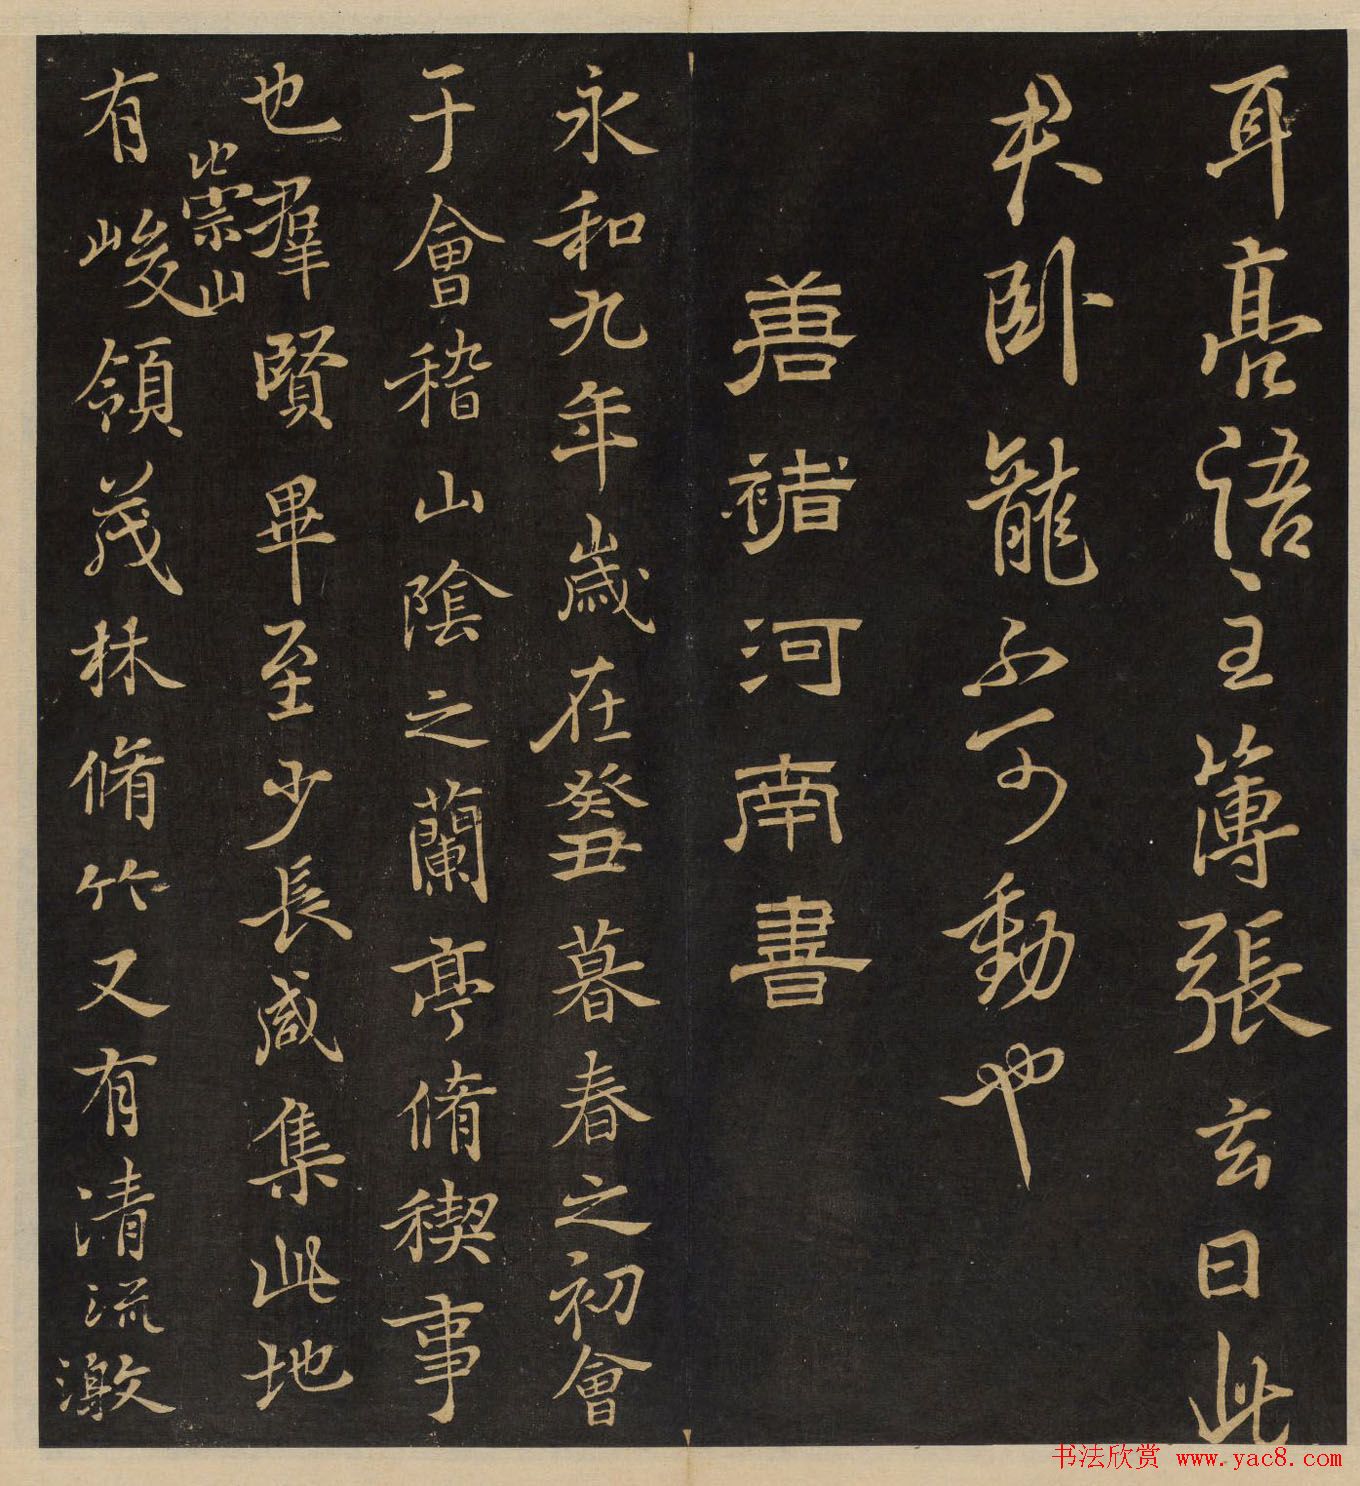 耳亮語主簿張玄曰此
卧龍不可動也
唐褚河南書
永和九年歲在癸丑暮春之初會
于會稽山陰之蘭亭脩稧事
也羣賢畢至少長咸集此地
崇山
有峻領茂林脩竹又有清流激
书法欣赏 www.yac8.com